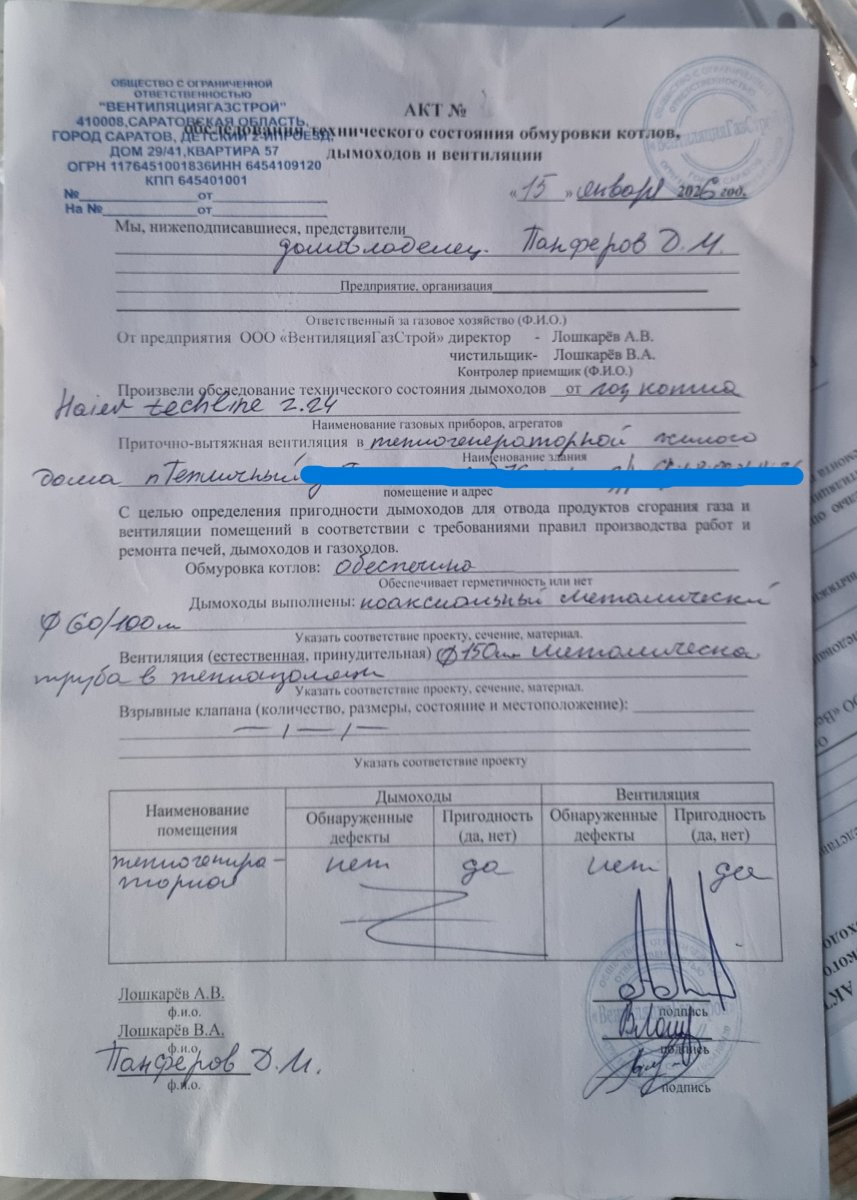 ОБЩЕСТВО С ОГРАНИЧЕННОЙ
ОТВЕТСТВЕННОСТЬЮ
"ВЕНТИЛЯЦИЯГАЗСТРОЙ"
410008,САРАТОВСКАЯ ОБЛАСТЬ,
ГОРОД САРАТОВ, ДЕТСКИЙ 2-Й ПРОЕЗД,
ДОМ 29/41,КВАРТИРА 57
ОГРН 1176451001836ИНН 6454109120
КПП 645401001
№ от
На № от
АКТ №
обследования технического состояния обмуровки котлов,
дымоходов и вентиляции
«15» января 2026 год.
Мы, нижеподписавшиеся, представители
домовладелец. Панферов Д.М.
Предприятие, организация
Ответственный за газовое хозяйство (Ф.И.О.)
От предприятия ООО «ВентиляцияГазСтрой» директор - Лошкарёв А.В.
чистильщик- Лошкарёв В.А.
Контролер приемщик (Ф.И.О.)
Произвели обследование технического состояния дымоходов от газ котла
Haier techline 2.24
Наименование газовых приборов, агрегатов
Приточно-вытяжная вентиляция в теплогенераторной жилого
Наименование здания
дома п Тепличный
помещение и адрес
С целью определения пригодности дымоходов для отвода продуктов сгорания газа и
вентиляции помещений в соответствии с требованиями правил производства работ и
ремонта печей, дымоходов и газоходов.
Обмуровка котлов: обеспечина
Обеспечивает герметичность или нет
Дымоходы выполнены: коаксиальный металический
Ф 60/100м
Указать соответствие проекту, сечение, материал.
Вентиляция (естественная, принудительная) Ф150м металическа
труба в
Указать соответствие проекту, сечение, материал.
Взрывные клапана (количество, размеры, состояние и местоположение):
— / — / —
Указать соответствие проекту
Наименование помещения
Дымоходы
Вентиляция
Обнаруженные дефекты
Пригодность (да, нет)
Обнаруженные дефекты
Пригодность (да, нет)
теплогенира-
торная
нет
да
нет
да
Лошкарёв А.В.
ф.и.о.
подпись
Лошкарёв В.А.
ф.и.о.
подпись
Панферов Д.М.
ф.и.о.
подпись